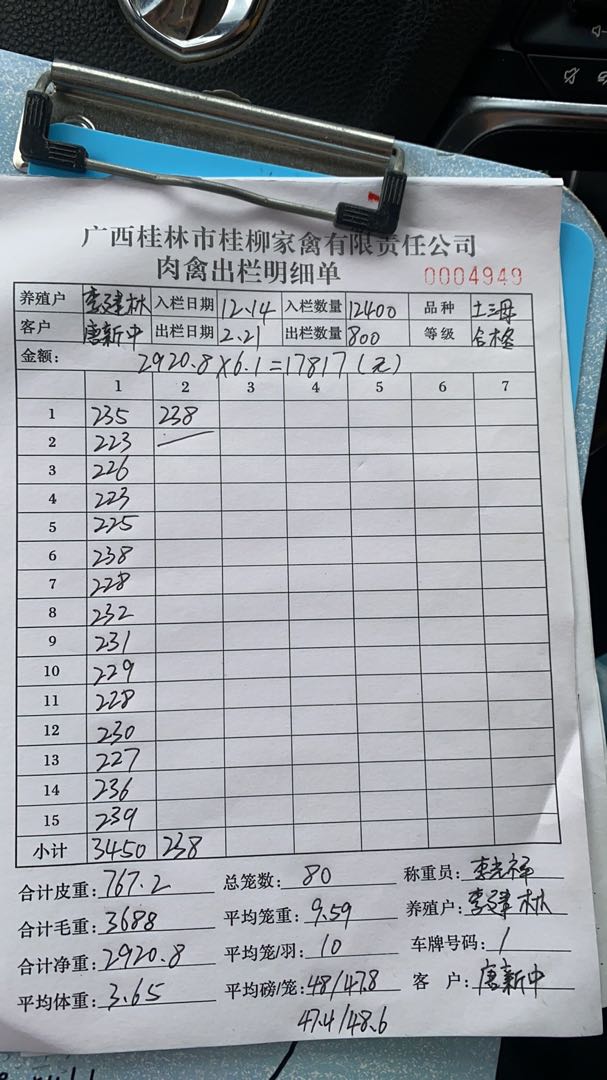 广西桂林市桂柳家禽有限责任公司
肉禽出栏明细单 0004949
养殖户 李建林 入栏日期 12.14 入栏数量 12400 品种 土三母
客户 唐新中 出栏日期 2.21 出栏数量 800 等级 合格
金额: 2920.8×6.1=17817(元)
1 2 3 4 5 6 7
1 235 238
2 223
3 226
4 223
5 225
6 238
7 228
8 232
9 231
10 229
11 228
12 230
13 227
14 236
15 239
小计 3450 238
合计皮重: 767.2 总笼数: 80 称重员: 李光祥
合计毛重: 3688 平均笼重: 9.59 养殖户: 李建林
合计净重: 2920.8 平均笼/羽: 10 车牌号码: 1
平均体重: 3.65 平均磅/笼: 48/47.8 客 户: 唐新中
47.4/48.6